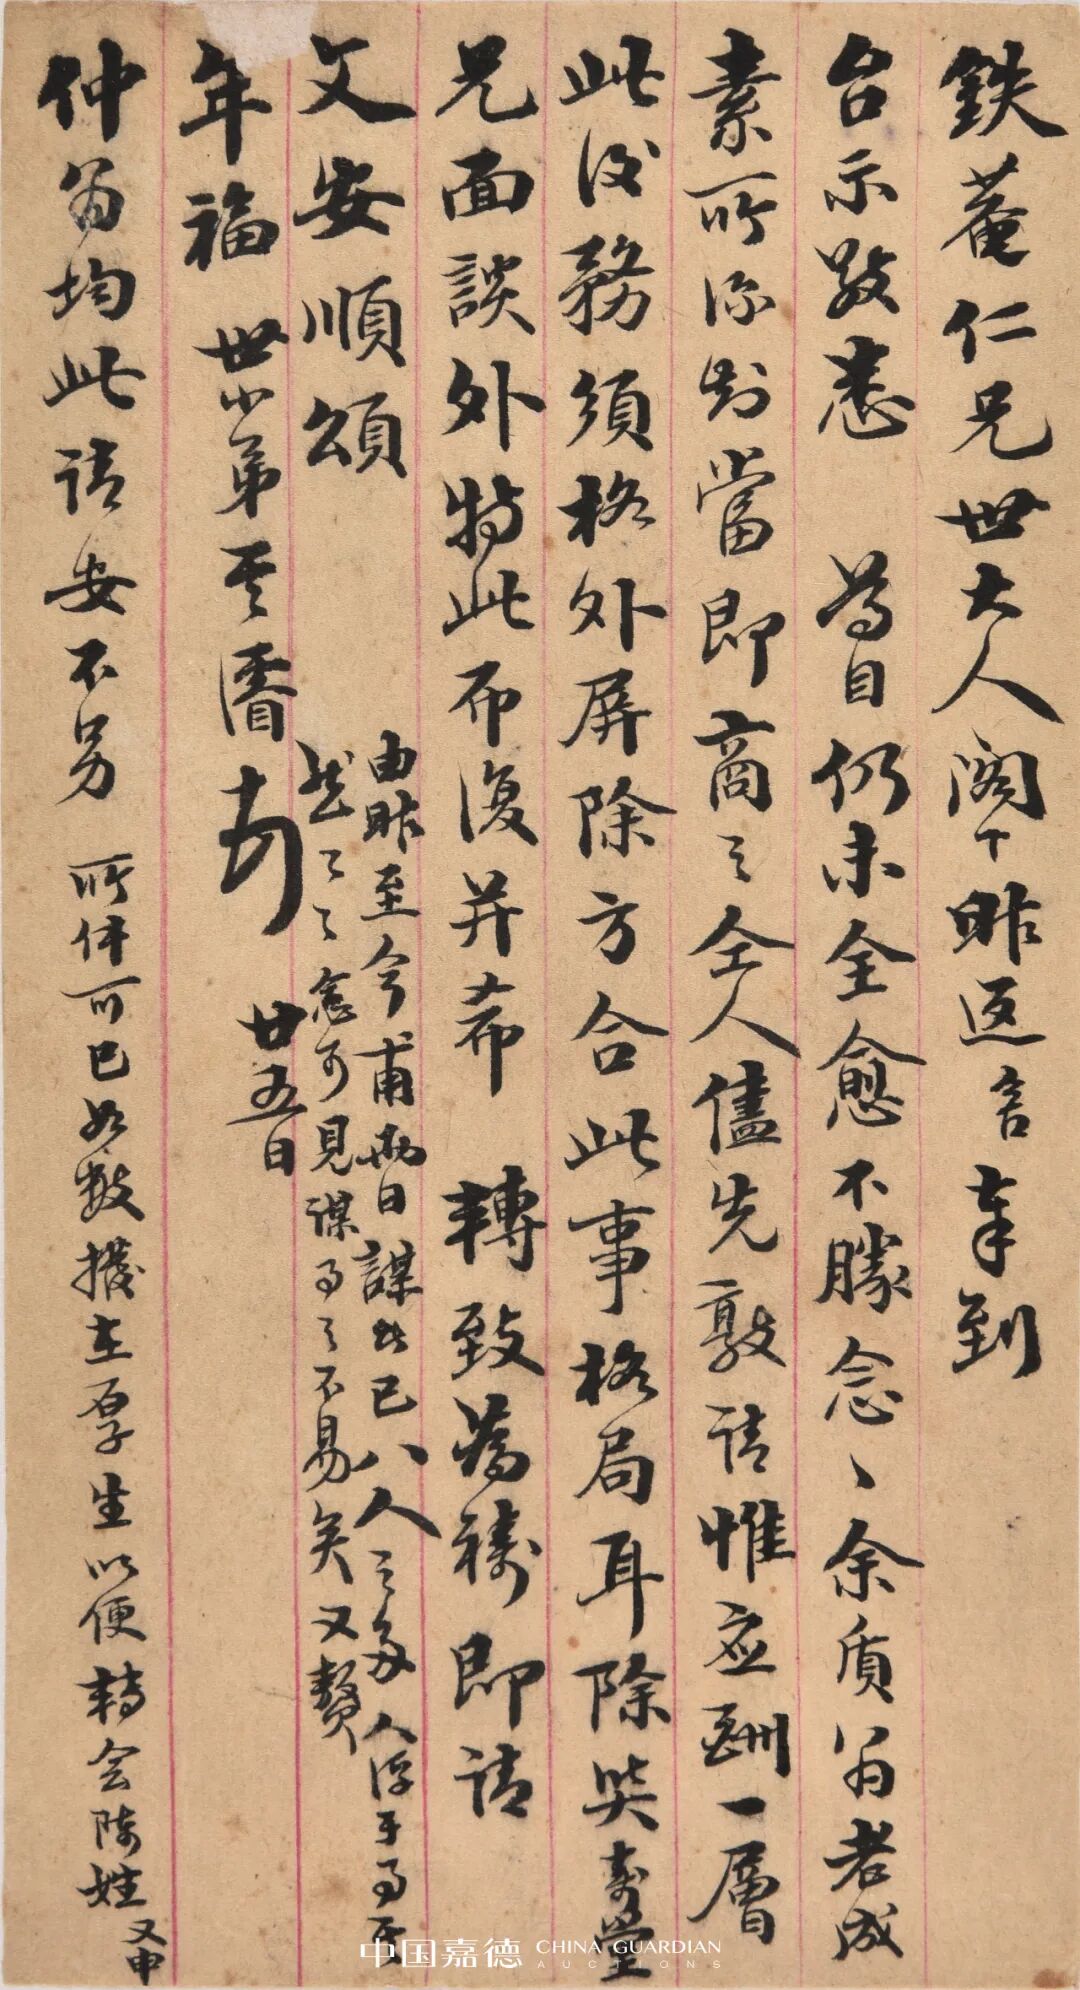 鉄菴仁兄世大人阁下昨返奉到
台示敬悉 為目仍未全愈不勝念念、余质翁老成
素所深当即商之仝人儘先敦请惟应酬一層
此後務須格外屏除方合此事格局耳除與壽堂
兄面談外特此布復并希 轉致為祷即请
文安順頌
年福 世小弟頓首 廿五日
由昨至今甫兩日謀此已八人之多人浮于事
愈可見謀事之不易矣又贅
仲翁均此请安不另 所件可已如數撥在厚生以便轉会陈姓 又申
中国嘉德 CHINA GUARDIAN
AUCTIONS